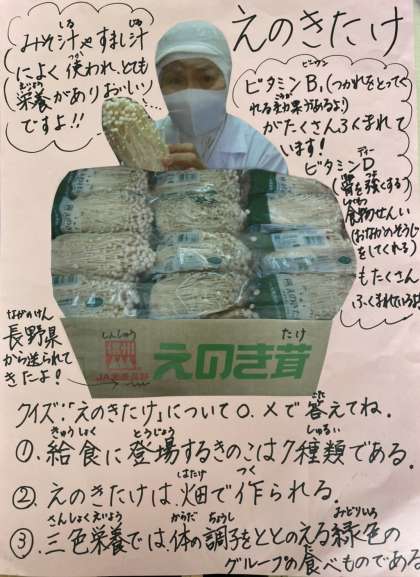 えのきたけ
みそ汁やすまし汁
によく使われ、とても
栄養がありおいしい
ですよ!!
ビタミンB₁(つかれをとってく
れる効果があるよ!)
がたくさんふくまれて
います!
ビタミンD
(骨を強くする)
食物せんい
(おなかのそうじ
をしてくれる)
もたくさん
ふくまれているよ
長野県
から送られて
きたよ!
しんしゅう
JA
えのき茸
たけ
クイズ:「えのきたけ」について○、×で答えてね。
①. 給食に登場するきのこは7種類である。
②. えのきたけは、畑で作られる。
③. 三色栄養では、体の調子をととのえる緑色の
グループの食べものである